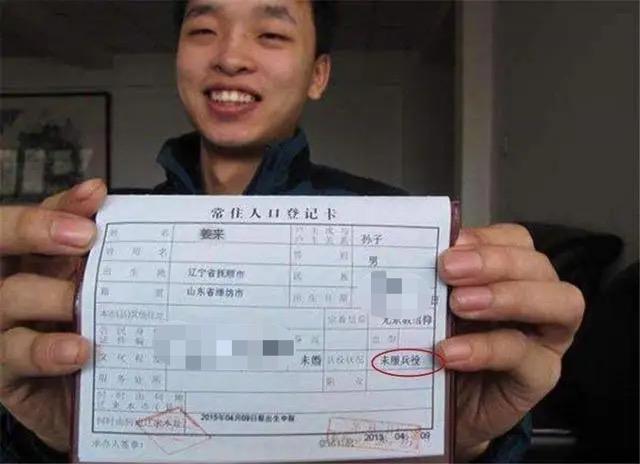 常住人口登记卡
姓名 姜来 户主或与户主关系 孙子
曾用名 性别 男
出生地 辽宁省抚顺市 民族
籍贯 山东省潍坊市 出生日期 日
本市(县)其他住址 宗教信仰 无宗教信仰
公民身 证件编 身高 血型
文化程 未婚 兵役状况 未服兵役
服务处所 职业
何时由何地
迁来本市
何时由何地迁来本址 2015年04月09日报出生申报
承办人签章: 2015 04 09